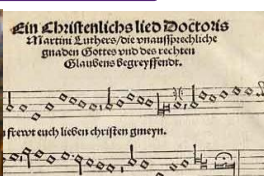 Ein Christenlichs lied Doctoris
Martini Luthers/die vnaussprechliche
gnaden Gottes vnd des rechten
Glaubens begreyffendt.
frewt euch lieben christen gmeyn.